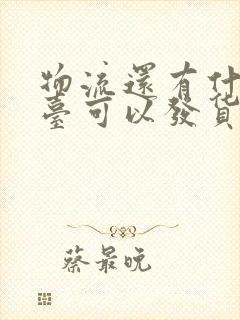 物流還有什
臺可以發貨
蔡最晚